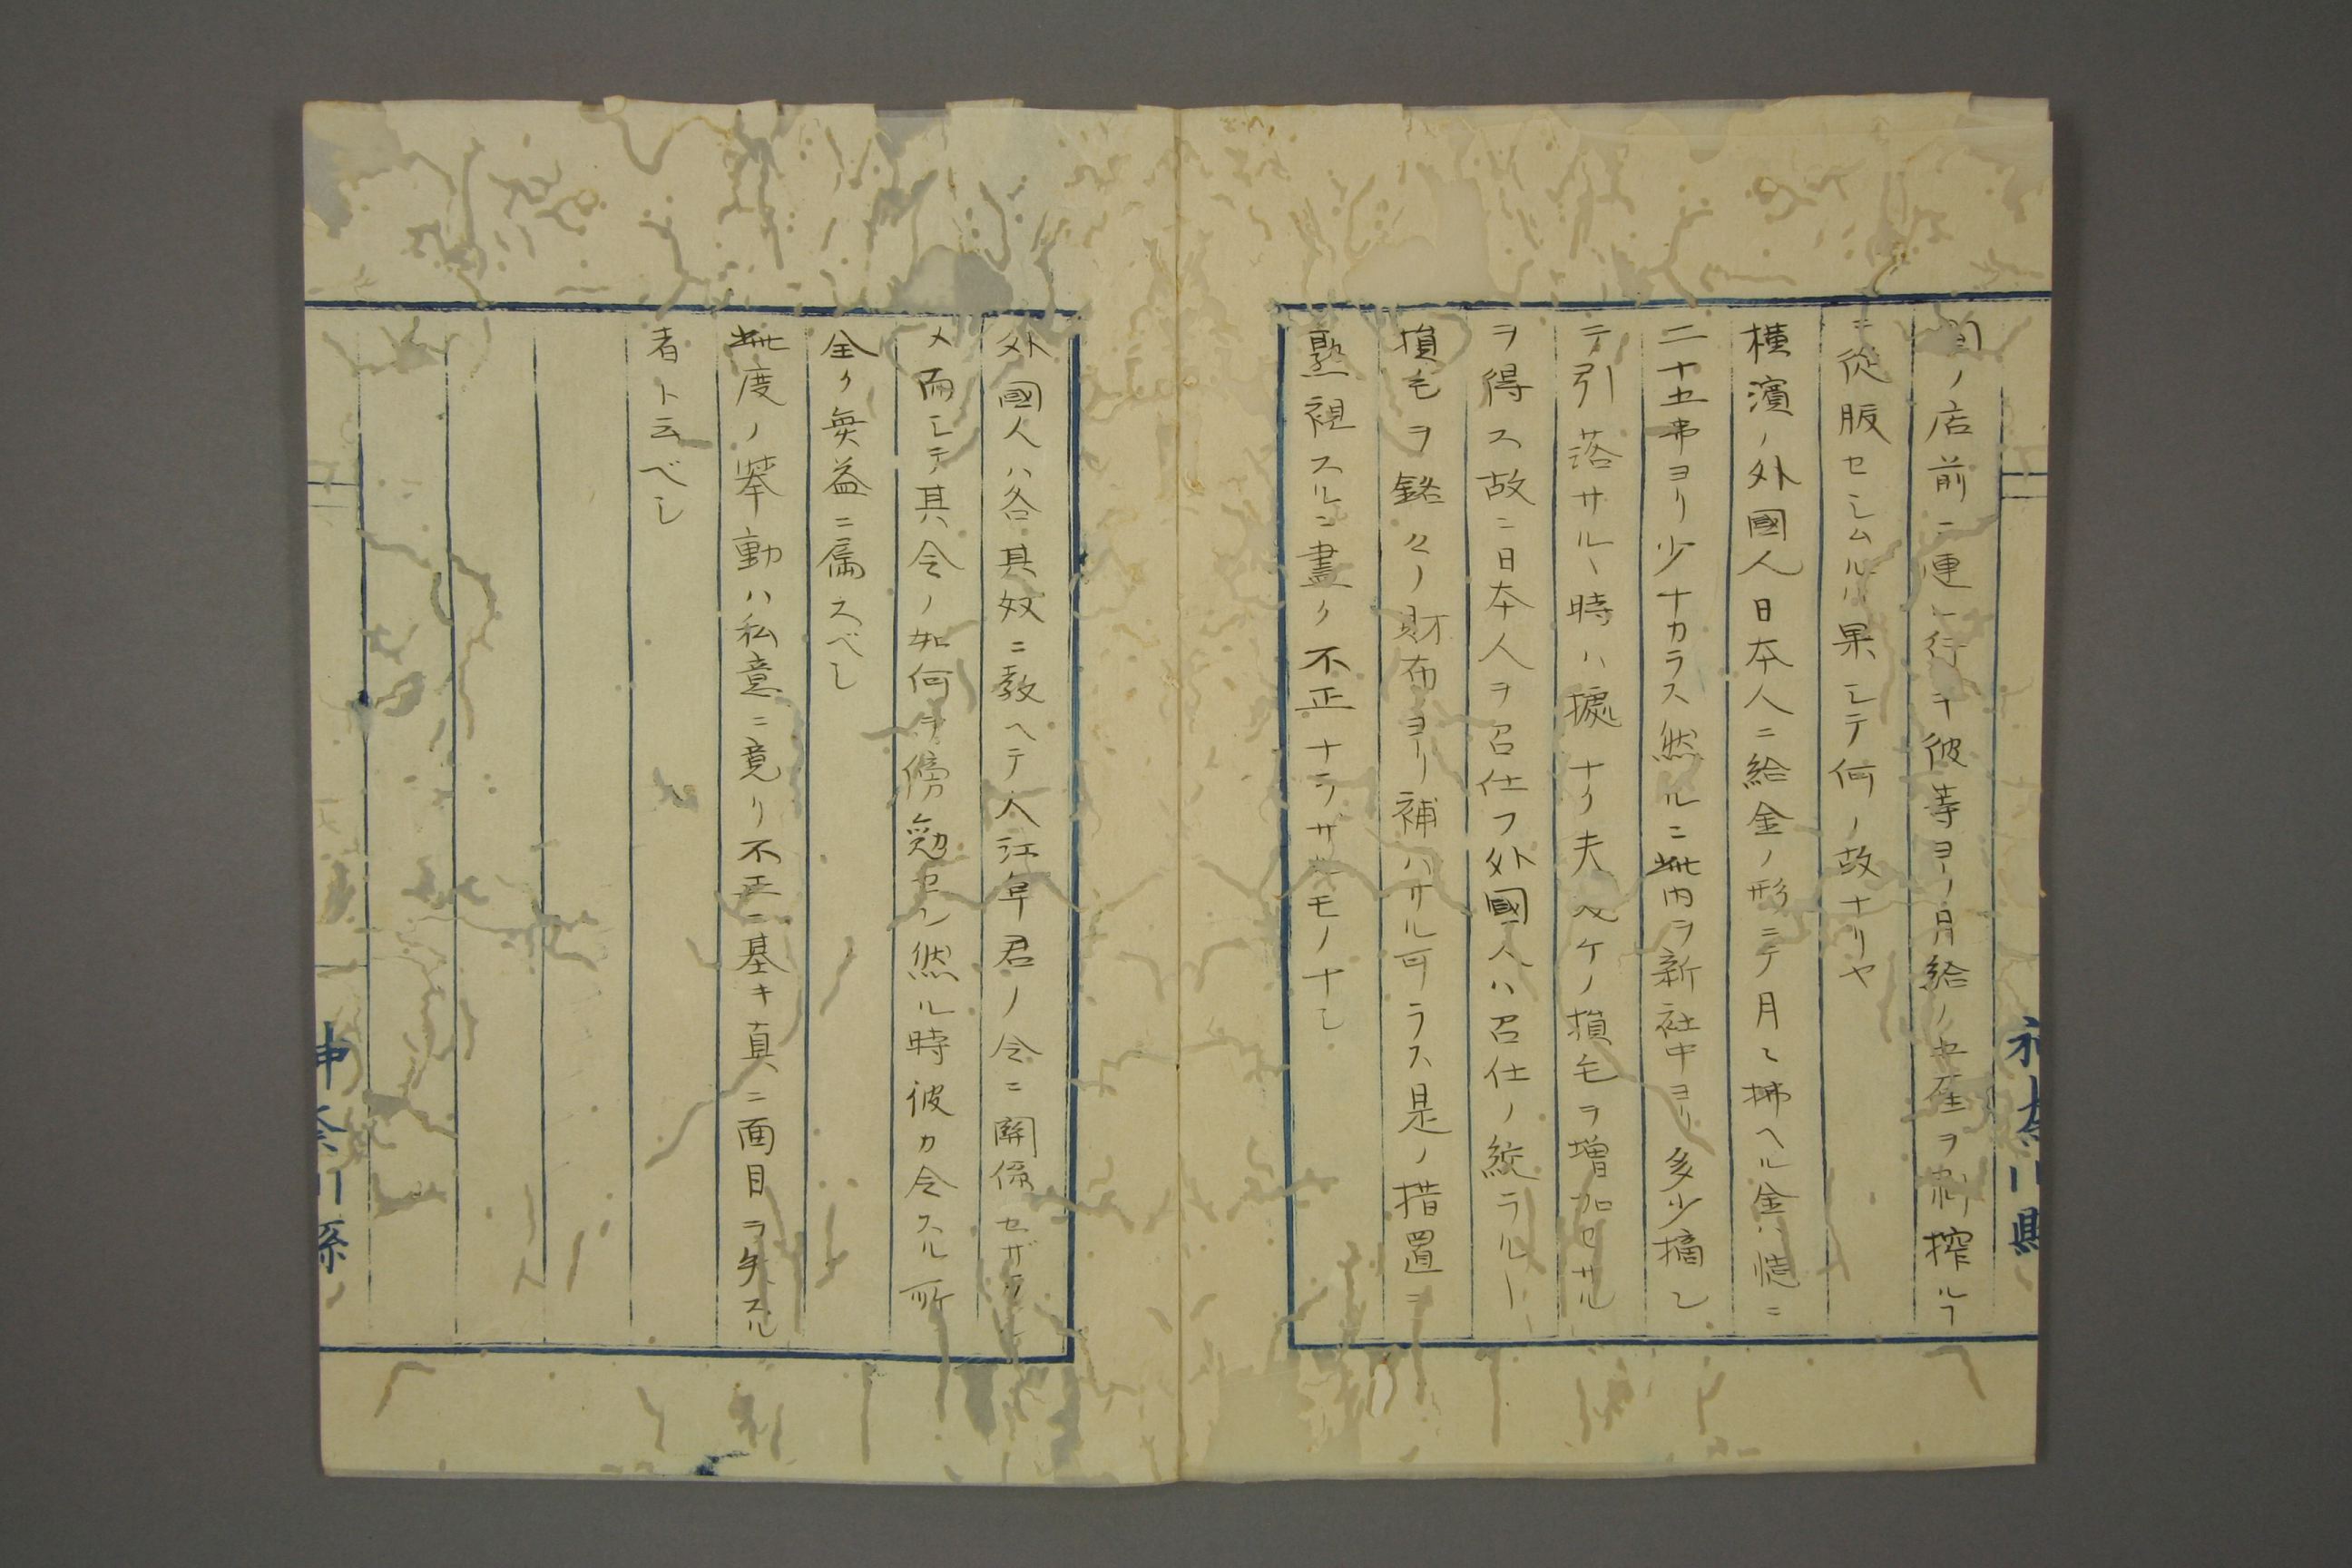 間ノ店前ニ連レ行キ彼等ヨリ月給ノ七座ヲ剥搾ルヿ
ニ從服セシムルハ果シテ何ノ故ナリヤ
横濱ノ外國人日本人ニ給金ノ形ニテ月々拂ヘル金ハ惣ニ
二十五弗ヨリ少ナカラス然ルニ此内ヲ新社中ヨリ多少摘シ
テ引落サルヽ時ハ據ナク夫丈ケノ損毛ヲ増加セサル
ヲ得ス故ニ日本人ヲ召仕フ外國人ハ召仕ノ絞ラル丨
損毛ヲ銘々ノ財布ヨリ補ハサル可ラス是ノ措置ヲ
熟視スルニ盡ク不正ナラザルモノナシ
外國人ハ各其奴ニ教ヘテ入江阜君ノ令ニ關係セザラシ
メ而シテ其令ノ如何ヲ傍勉セン然ル時彼カ令スル所
全ク無益ニ属スベし
此度ノ挙動ハ私意ニ竟リ不正ニ基キ真ニ面目ヲ失スル
者ト云ベし
神奈川縣
神奈川縣